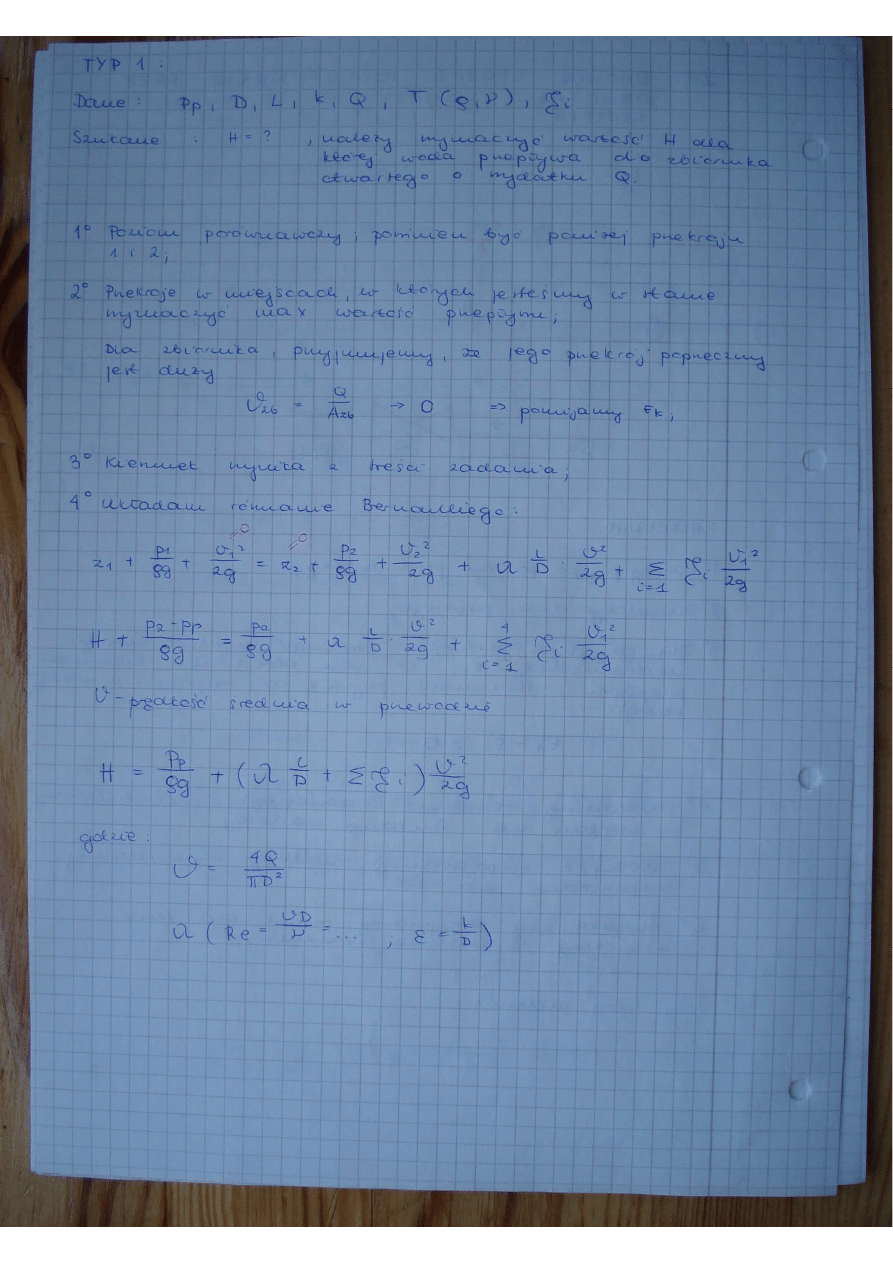 TYP 1 :
Dane : Pp, D, L, k, Q, T (ρ, ν), ξi
Szukane : H = ? , należy wyznaczyć wartość H dla
której woda przepływa do zbiornika
otwartego o wydatku Q.
1° Poziom porównawczy, powinien być poniżej przekroju
1 i 2;
2° Przekroje w miejscach, w których jesteśmy w stanie
wyznaczyć max wartość przepływu;
Dla zbiornika, przyjmujemy, że jego przekrój poprzeczny
jest duży
υzb = Q/Azb → 0 => pomijamy Ek;
3° Kierunek wynika z treści zadania;
4° Układam równanie Bernoulliego:
z1 + p1/ρg + υ1²/2g = z2 + p2/ρg + υ2²/2g + λ L/D · υ²/2g + Σ i=1 ξi υ1²/2g
=0 =0
H + pa-pp/ρg = pa/ρg + λ L/D · υ²/2g + Σ 4 i=1 ξi υ1²/2g
υ - prędkość średnia w przewodzie
H = Pp/ρg + (λ L/D + Σ ξi) υ²/2g
gdzie:
υ = 4Q/πD²
λ (Re = υD/ν = ... , ε = k/D)